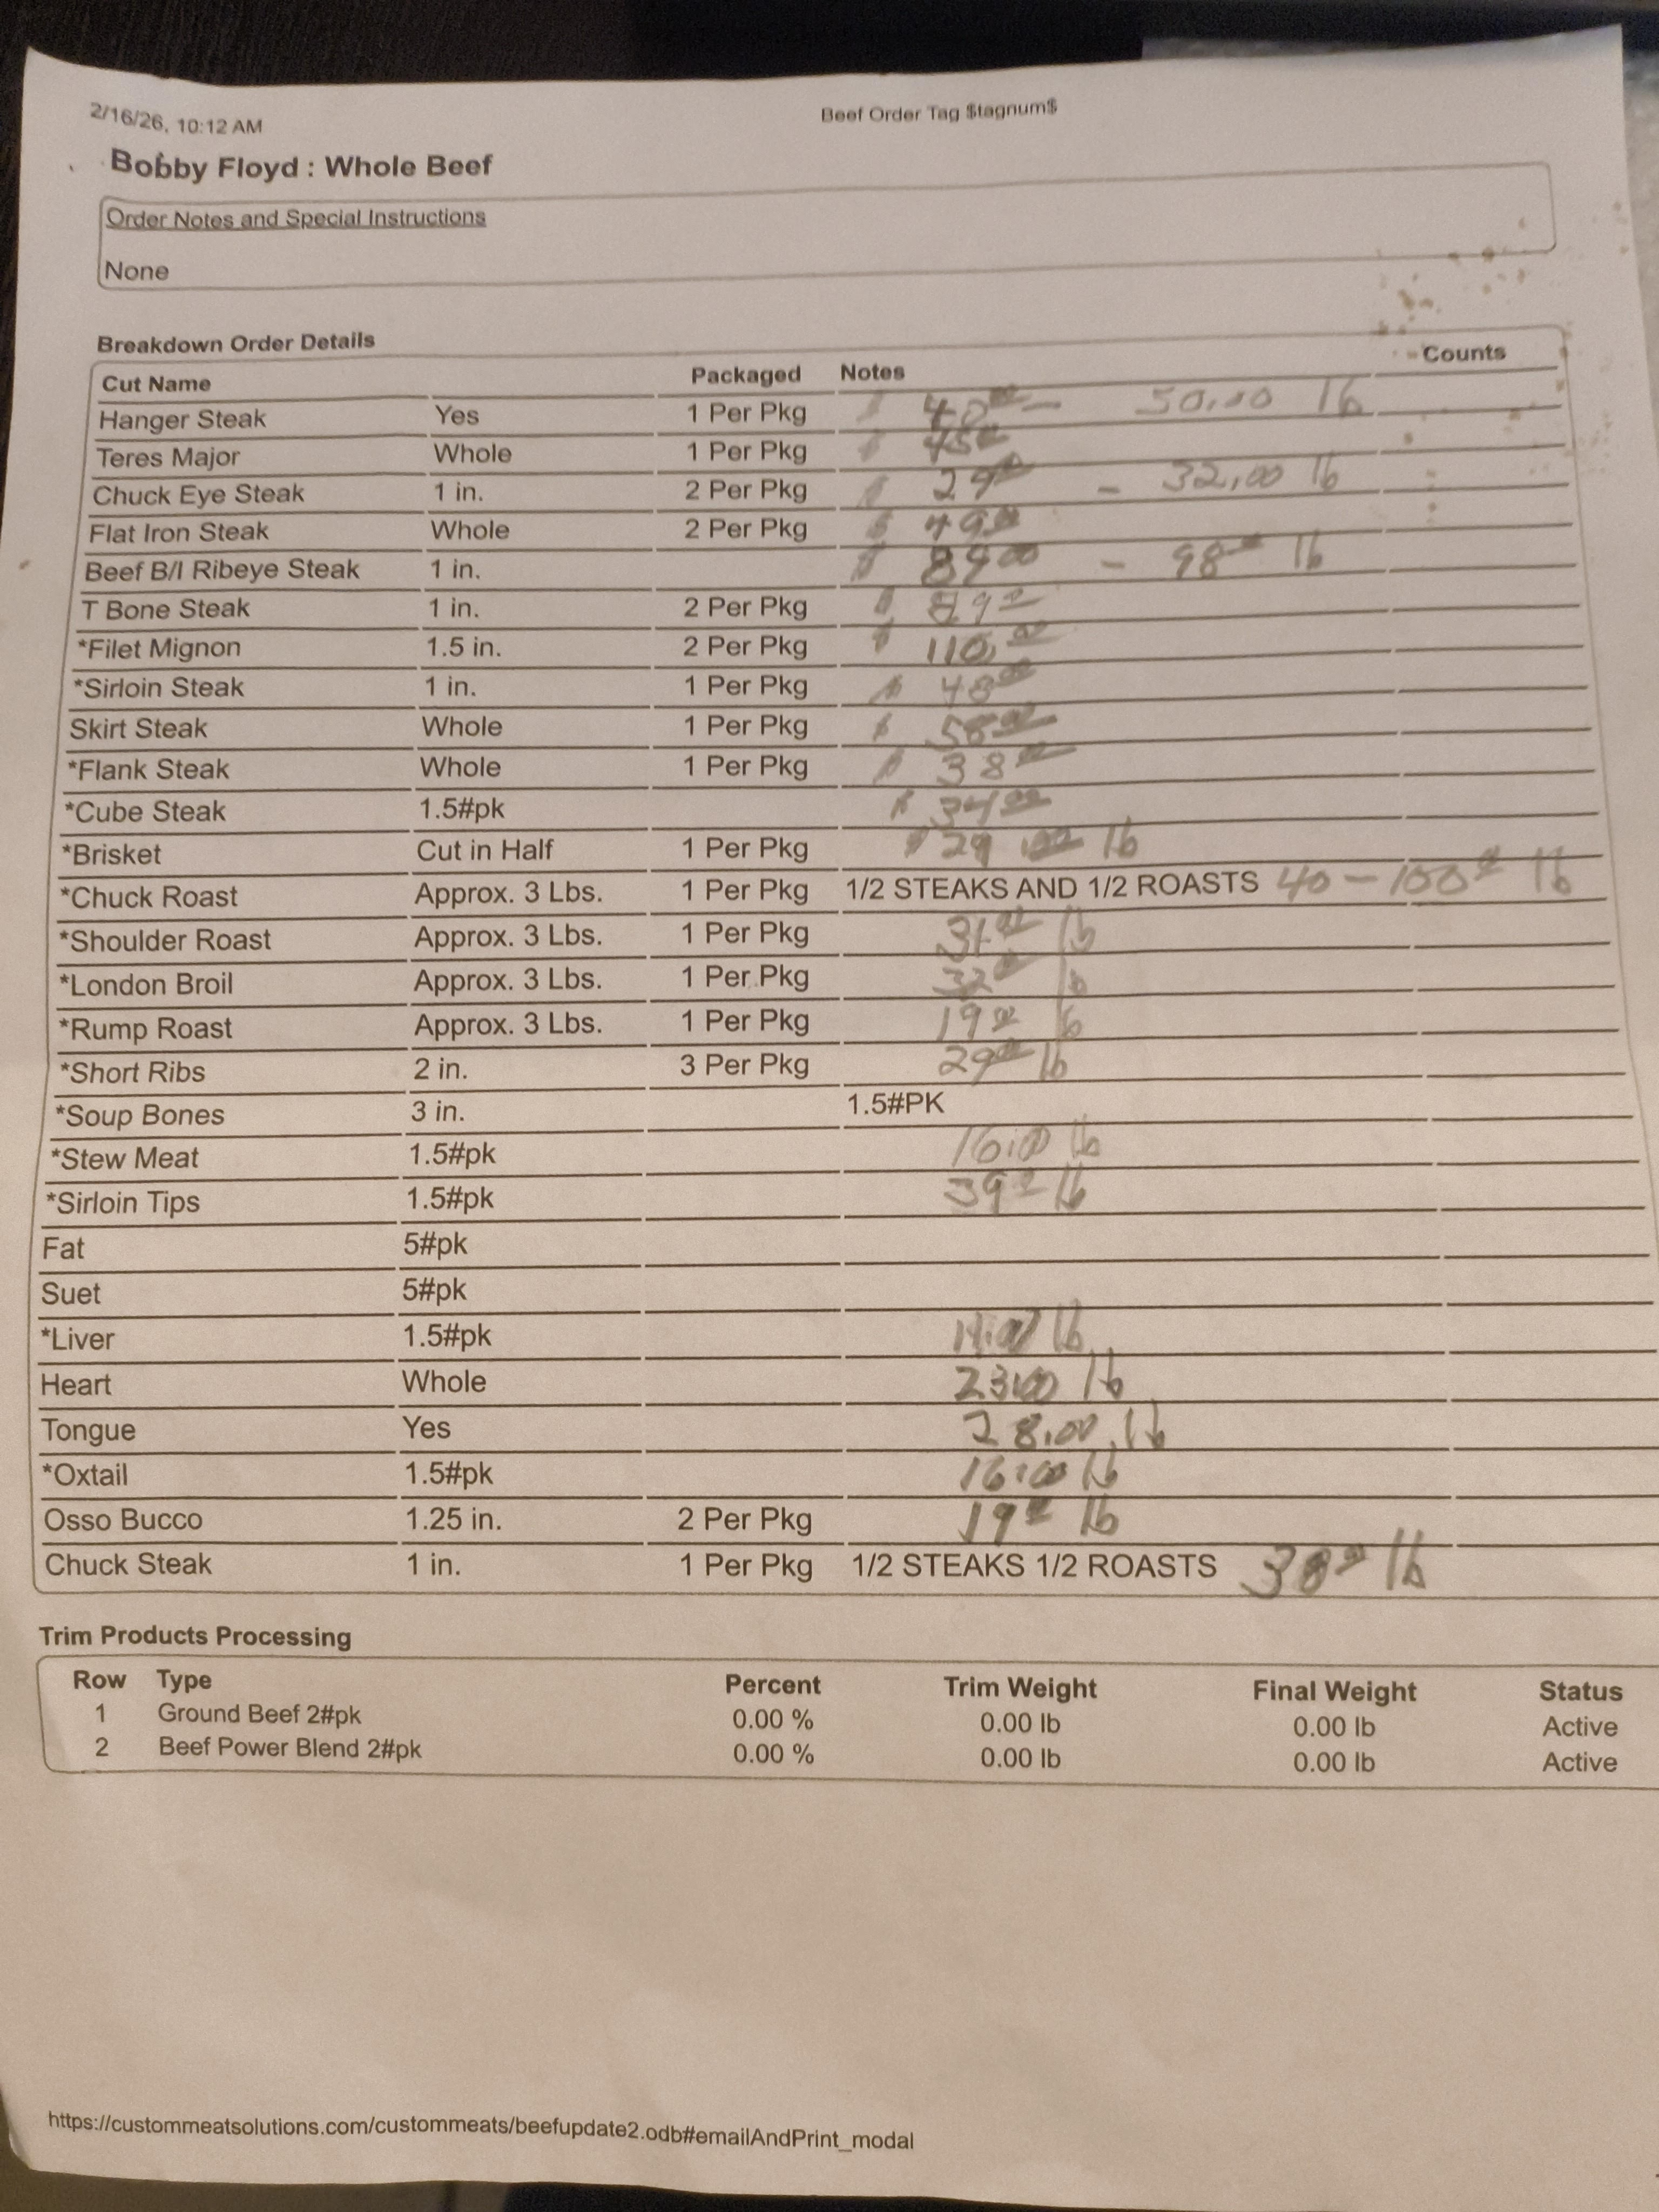 2/16/26, 10:12 AM Beef Order Tag $tagnum$
Bobby Floyd : Whole Beef
Order Notes and Special Instructions
None
Breakdown Order Details
Cut Name Packaged Notes Counts
Hanger Steak Yes 1 Per Pkg $ 48.00 - 50.00 lb
Teres Major Whole 1 Per Pkg $ 45.00
Chuck Eye Steak 1 in. 2 Per Pkg $ 29.00 - 32.00 lb
Flat Iron Steak Whole 2 Per Pkg $ 49.00
Beef B/I Ribeye Steak 1 in. $ 89.00 - 98.00 lb
T Bone Steak 1 in. 2 Per Pkg $ 89.00
*Filet Mignon 1.5 in. 2 Per Pkg $ 110.00
*Sirloin Steak 1 in. 1 Per Pkg $ 48.00
Skirt Steak Whole 1 Per Pkg $ 58.00
*Flank Steak Whole 1 Per Pkg $ 38.00
*Cube Steak 1.5#pk $ 34.00
*Brisket Cut in Half 1 Per Pkg $ 29.00 lb
*Chuck Roast Approx. 3 Lbs. 1 Per Pkg 1/2 STEAKS AND 1/2 ROASTS 40 - 100.00 lb
*Shoulder Roast Approx. 3 Lbs. 1 Per Pkg 31.00 lb
*London Broil Approx. 3 Lbs. 1 Per Pkg 32.00 lb
*Rump Roast Approx. 3 Lbs. 1 Per Pkg 19.00 lb
*Short Ribs 2 in. 3 Per Pkg 29.00 lb
*Soup Bones 3 in. 1.5#PK
*Stew Meat 1.5#pk 16.00 lb
*Sirloin Tips 1.5#pk 39.00 lb
Fat 5#pk
Suet 5#pk
*Liver 1.5#pk lb
Heart Whole 23.00 lb
Tongue Yes 28.00 lb
*Oxtail 1.5#pk 16.00 lb
Osso Bucco 1.25 in. 2 Per Pkg 19.00 lb
Chuck Steak 1 in. 1 Per Pkg 1/2 STEAKS 1/2 ROASTS 38.00 lb
Trim Products Processing
Row Type Percent Trim Weight Final Weight Status
1 Ground Beef 2#pk 0.00 % 0.00 lb 0.00 lb Active
2 Beef Power Blend 2#pk 0.00 % 0.00 lb 0.00 lb Active
https://custommeatsolutions.com/custommeats/beefupdate2.odb#emailAndPrint_modal